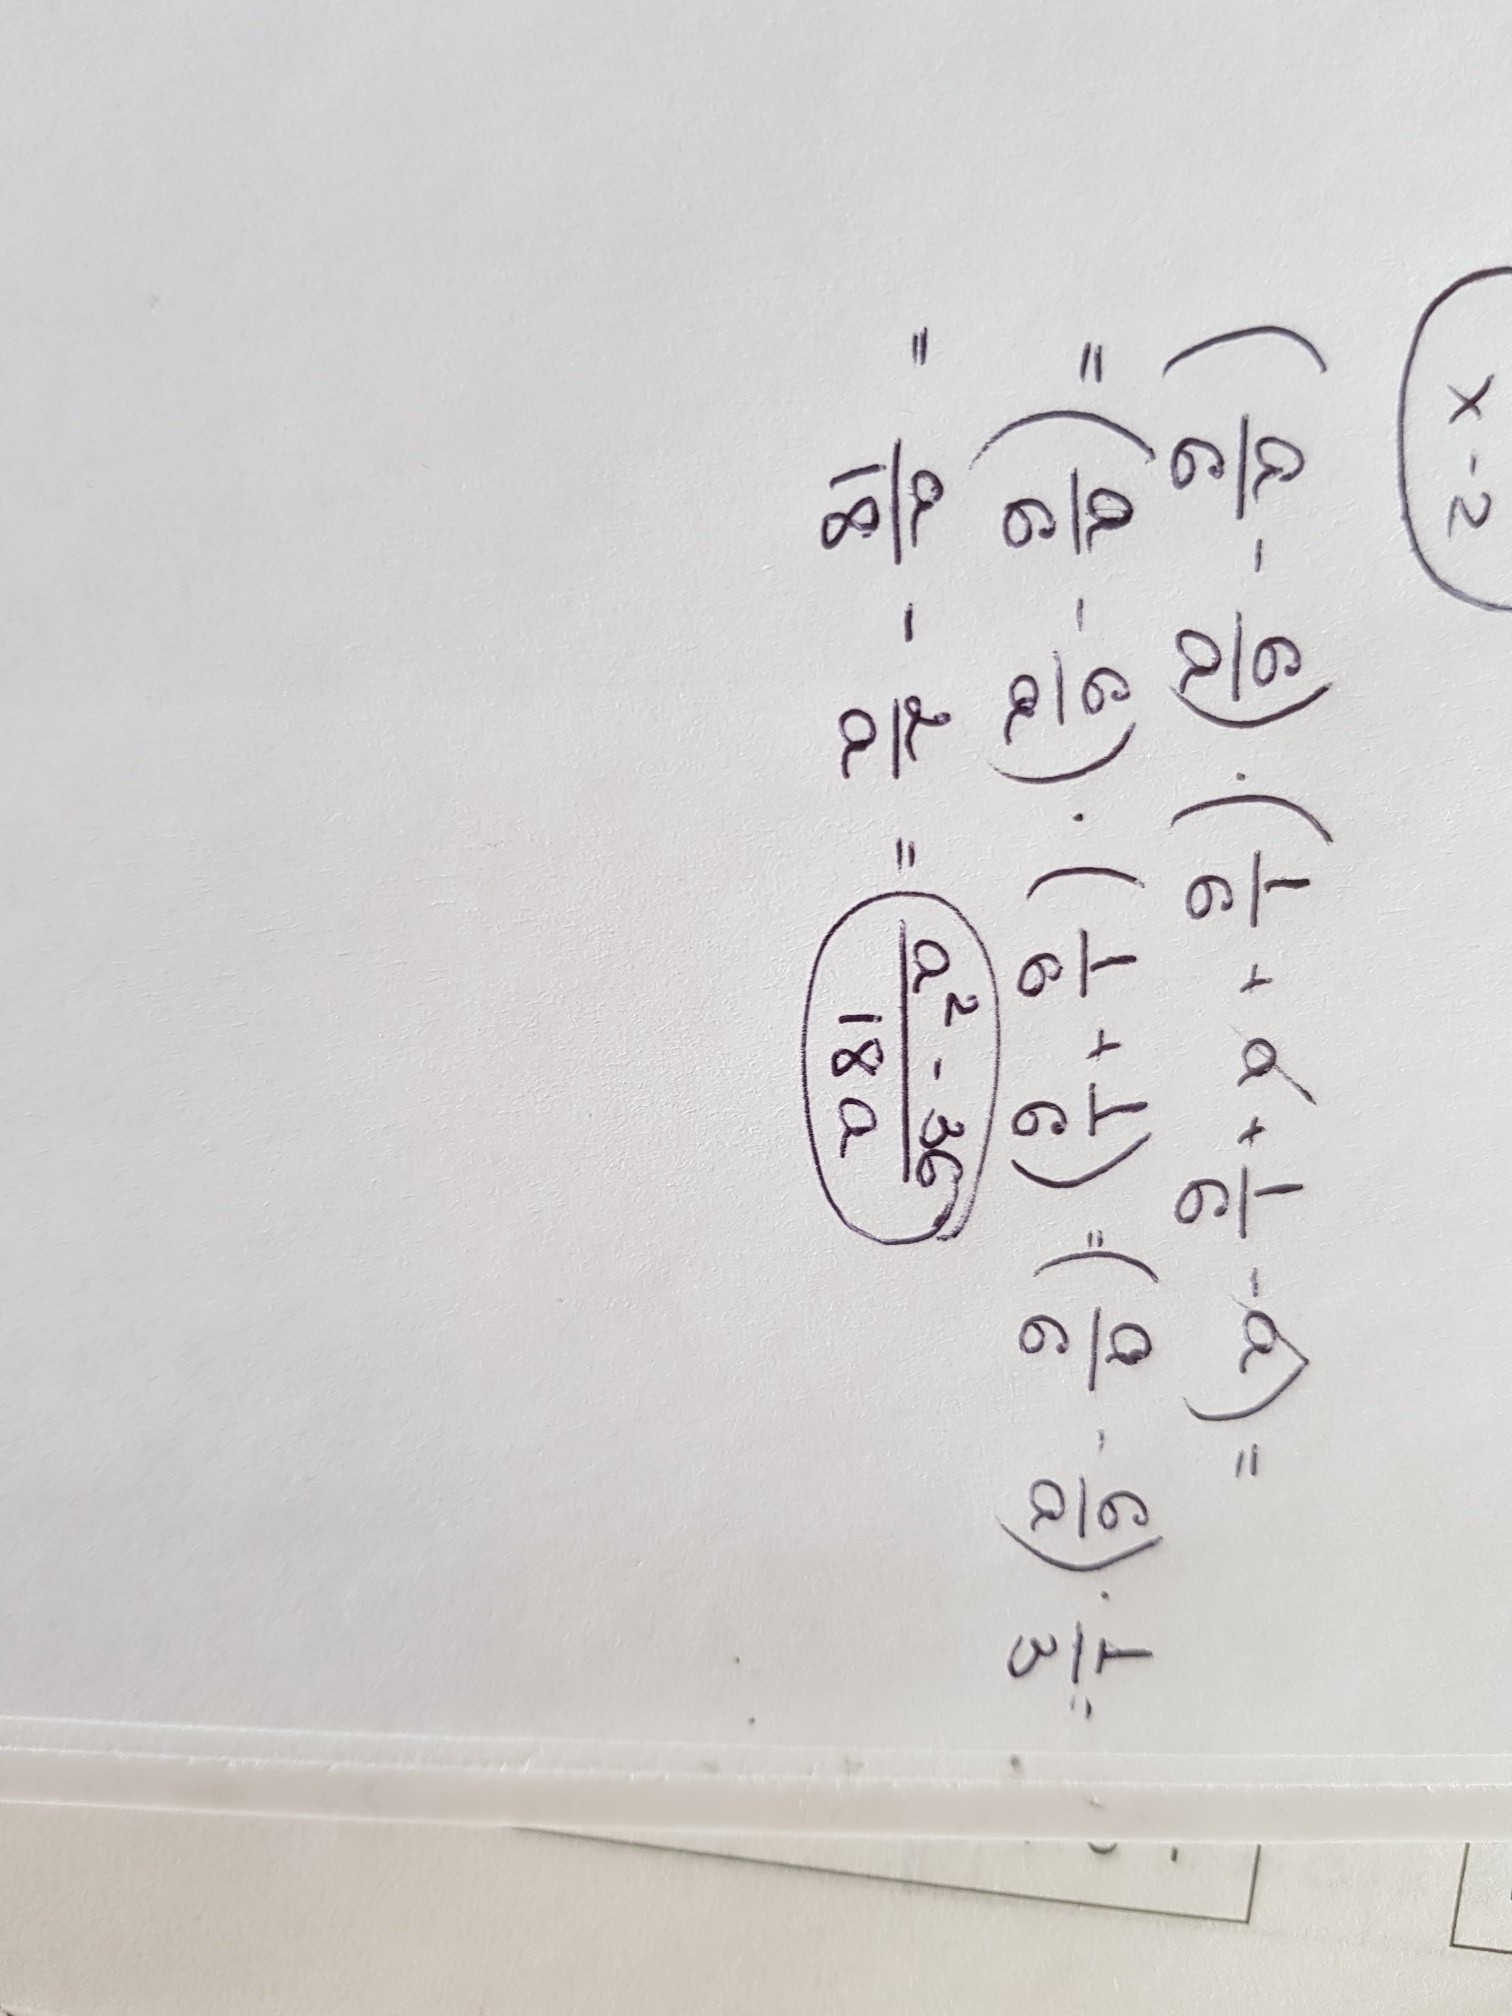 x - 2
(a/6 - 6/a) · (1/6 + a + 1/6 - a) =
= (a/6 - 6/a) · (1/6 + 1/6) = (a/6 - 6/a) · 1/3 =
= a/18 - 2/a = (a² - 36)/(18a)